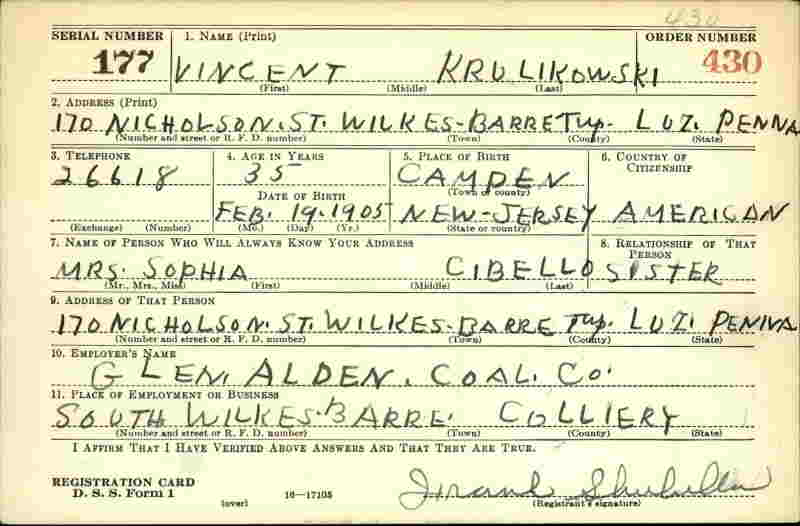 430
SERIAL NUMBER 1. NAME (Print) ORDER NUMBER
177 VINCENT KRULIKOWSKI 430
(First) (Middle) (Last)
2. ADDRESS (Print)
170 NICHOLSON. ST. WILKES-BARRE Twp. LUZ. PENNA
(Number and street or R. F. D. number) (Town) (County) (State)
3. TELEPHONE 4. AGE IN YEARS 5. PLACE OF BIRTH 6. COUNTRY OF CITIZENSHIP
26618 35 CAMDEN
(Town or county)
DATE OF BIRTH
FEB. 19. 1905 NEW-JERSEY AMERICAN
(Exchange) (Number) (Mo.) (Day) (Yr.) (State or country)
7. NAME OF PERSON WHO WILL ALWAYS KNOW YOUR ADDRESS 8. RELATIONSHIP OF THAT PERSON
MRS. SOPHIA CIBELLO SISTER
(Mr., Mrs., Miss) (First) (Middle) (Last)
9. ADDRESS OF THAT PERSON
170 NICHOLSON. ST. WILKES-BARRE Twp. LUZ. PENNA
(Number and street or R. F. D. number) (Town) (County) (State)
10. EMPLOYER'S NAME
GLEN. ALDEN. COAL. CO.
11. PLACE OF EMPLOYMENT OR BUSINESS
SOUTH WILKES-BARRE. COLLIERY
(Number and street or R. F. D. number) (Town) (County) (State)
I AFFIRM THAT I HAVE VERIFIED ABOVE ANSWERS AND THAT THEY ARE TRUE.
REGISTRATION CARD
D. S. S. Form 1 (over) 16—17105 (Registrant's signature)